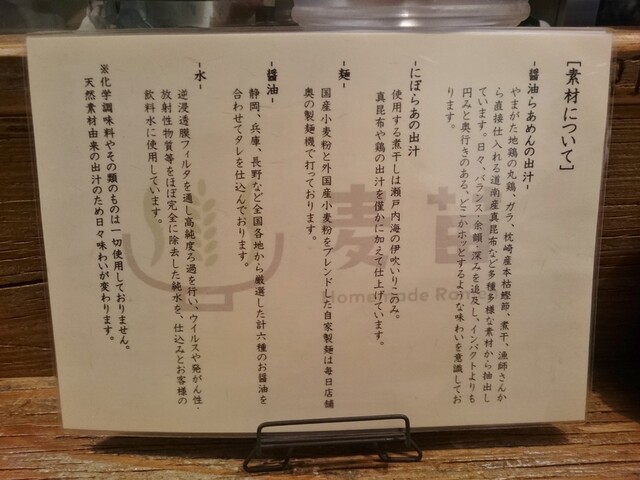 [素材について]
-醤油らあめんの出汁-
やまがた地鶏の丸鶏、ガラ、枕崎産本枯鰹節、煮干、漁師さんか
ら直接仕入れる道南産真昆布など多種多様な素材から抽出し
ています。日々、バランス・余韻・深みを追及し、インパクトよりも
円みと奥行きのある、どこかホッとするような味わいを意識してお
ります。
-にぼらあの出汁
使用する煮干しは瀬戸内海の伊吹いりこのみ。
真昆布や鶏の出汁を僅かに加えて仕上げています。
-麺-
国産小麦粉と外国産小麦粉をブレンドした自家製麺は毎日店舗
奥の製麺機で打っております。
-醤油-
静岡、兵庫、長野など全国各地から厳選した計六種のお醤油を
合わせてタレを仕込んでおります。
-水-
逆浸透膜フィルタを通し高純度ろ過を行い、ウイルスや発がん性・
放射性物質等をほぼ完全に除去した純水を、仕込みとお客様の
飲料水に使用しています。
※化学調味料やその類のものは一切使用しておりません。
天然素材由来の出汁のため日々味わいが変わります。
麦苗
Homemade Ra